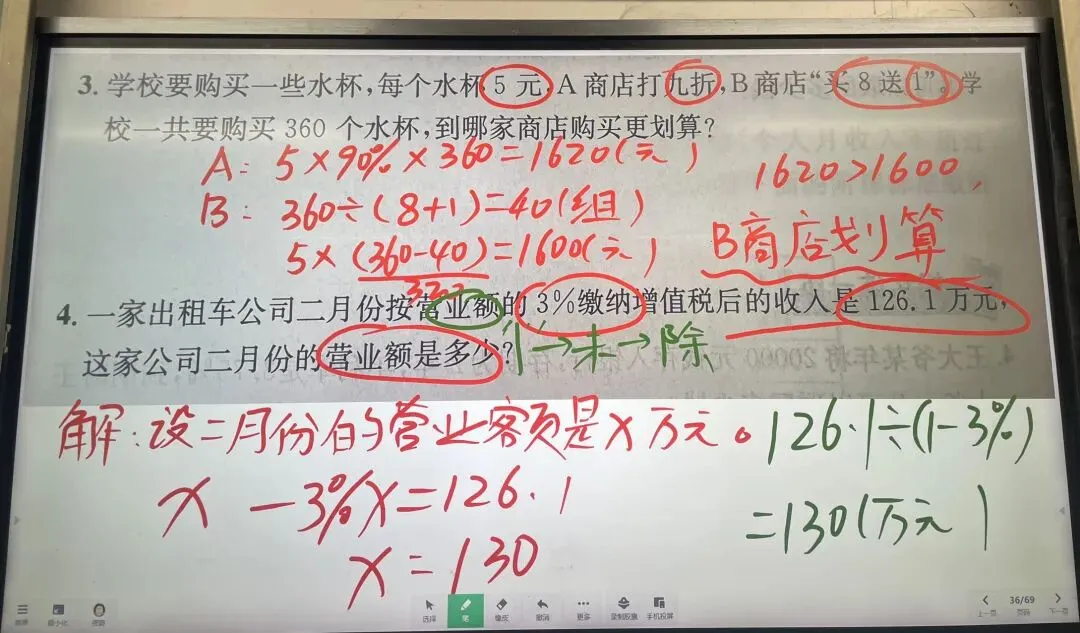 3. 学校要购买一些水杯，每个水杯 5 元，A 商店打九折，B 商店“买 8 送 1”。学
校一共要购买 360 个水杯，到哪家商店购买更划算？
A: 5×90%×360=1620(元)
1620>1600,
B: 360÷(8+1)=40(组)
5×(360-40)=1600(元)
B商店划算
320
4. 一家出租车公司二月份按营业额的 3%缴纳增值税后的收入是 126.1 万元，
这家公司二月份的营业额是多少？
“1”→未→除
解:设二月份的营业额是x万元。
126.1÷(1-3%)
x-3%x=126.1
=130(万元)
x=130
选择 笔 橡皮 撤消 更多 录制胶囊 手机投屏
36/69